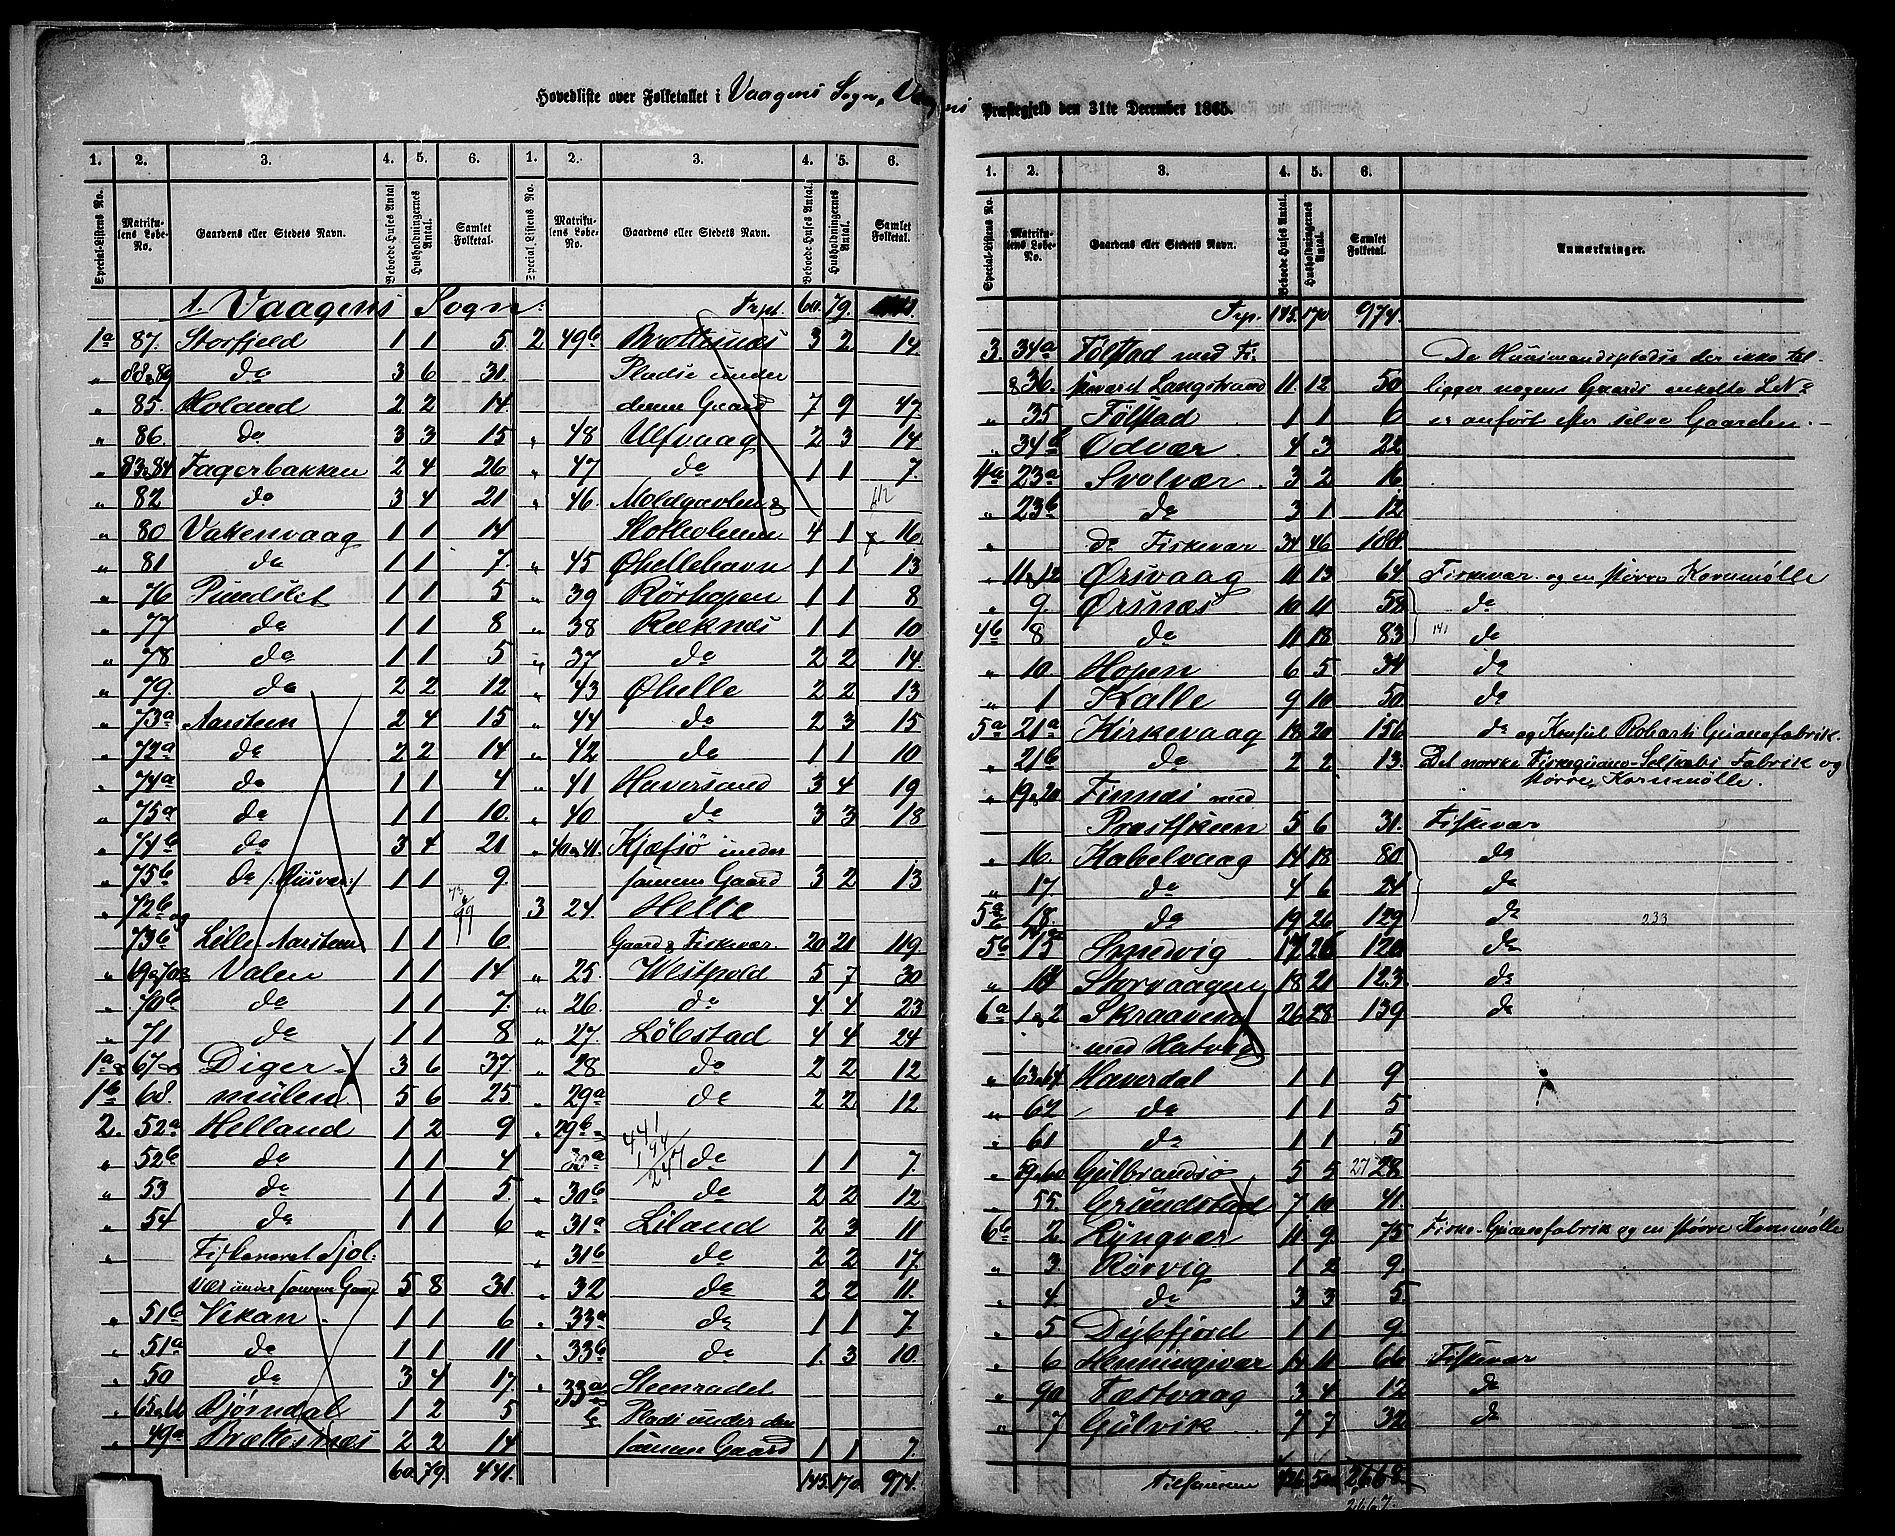 Hovedliste over Folketallet i Vaagens Sogn, Vaagens Præstegjeld den 31te December 1865.
1. 2. 3. 4. 5. 6. 1. 2. 3. 4. 5. 6.
Special-Listens No. Matrikulens Løbe-No. Gaardens eller Stedets Navn. Beboede Huses Antal Husholdningernes Antal. Samlet Folketal. Special-Listens No. Matrikulens Løbe-No. Gaardens eller Stedets Navn. Beboede Huses Antal. Husholdningernes Antal. Samlet Folketal.
1. Vaagens Sogn: Trpt. 60 79.
1a 87. Storfjeld 1 1 5. 2 49b Brættesnæs 3 2 14.
" 88&89 do 3 6 31. Pladse under
" 85. Holand 2 2 14. denne Gaard 7 9 47
" 86. do 3 3 15 " 48 Ulfvaag 2 3 14
" 83&84 Fagerbakken 2 4 26 " 47 do 1 1 7.
" 82 do 3 4 21 " 46 Moldgavlen &
" 80 Vatervaag 1 1 14 Stokholmen 4 1 16
" 81 do 1 1 7. " 45 Øhellehavn 1 1 13
" 76 Pundslet 1 1 5 " 39 Rørhopen 1 1 8
" 77 do 1 1 8 " 38 Reknæs 1 1 10
" 78 do 1 1 5 " 37 do 2 2 14.
" 79. do 2 2 12 " 43 Øhelle 2 2 13
" 73a Aarsteen 2 4 15 " 44 do 2 3 15
" 72a do 2 2 14 " 42 do 1 1 10
" 74a do 1 1 4 " 41 Haversand 3 4 19
" 75a do 1 1 10. " 40 do 3 3 18
" 74b do 3 4 21 " 40&41 Kjefsø under
" 75b do 1 1 9. samme Gaard 3 2 13
" 72b og 3 24 Helle
73b Lille Aarsteen 1 1 6 Gaard & Fiskevær. 20 21 119
" Valen 1 1 14 " 25. Westpold 5 7 30
" 70b do 1 1 7. " 26. do 4 4 23
" 71 do 1 1 8 " 27. Løbstad 4 4 24
1a 67 Diger- 3 6 37 " 28 do 2 2 12
1b 68. mülen 5 6 25 " 29a do 2 2 12
2. 52a Helland 1 2 9 " 29b 441
" 52b do 1 1 4 30a do 1 1 7.
" 53 do 1 1 5. " 30b do 2 2 12
" 54 do 1 1 6 " 31a Liland 2 3 11
Fiskeværet Sjol- " 31b do 2 2 17.
vær under samme Gaard 5 8 31 " 32 do 2 2 11.
" 51b Vikan 1 1 6 " 33a do 1 1 7
" 51a do 1 1 11 " 33b do 1. 3 10.
" 50 do 3 4 17 " 33a Steenradet
" Bjørndal 1 2 5 b Plads under den
" 49a Brættesnæs 2 2 14 samme Gaard 1 1 7.
60 79. 441. 145. 170. 974.
1. 2. 3. 4. 5. 6.
Special-Listens No. Matrikulens Løbe-No. Gaardens eller Stedets Navn. Beboede Huses Antal. Husholdningernes Antal. Samlet Folketal. Anmærkninger.
Trp. 145. 170 974.
3. 34a Følstad med Fi- De Huusmandspladse der ikke til-
& 36. skeværet Langstrand 11 12 50 ligger nogens Gaards enkelte LNo
" 35 Følstad 1 1 6 er anført efter selve Gaarden.
" 34b Odvær 4 3 22
4a 23a Svolvær 3 2 16
" 23b do 3 1 12
" do Fiskevær 34 46 188
" 11&12 Ørsvaag 11 13 64 Fiskevær og en større Kornmølle
" 9. Ørsnæs 10 11 58 do
4b 8 do 11 18 83 141 do
" 10 Hopen 6 5 34 do
" 1 Kalle 9 10 50. do
5a 21a Kirkevaag 18 20 156 do og Konsul Robarts Guanofabrik.
" 21b do 2 2 13. Det norske Fiskeguano-Selskabs Fabrik og
" 19&20 Finnæs med større Kornmølle.
Præstskeen 5 6 31. Fiskevær
" 16. Kabelvaag 14 18 80 do
" 17. do 4 6 24 do
5a 18. do 19 26 129 do 233
5b 15 Smedvig 17 26 120 do
" Storvaagen 18 21 123 do
6a 1&2 Skraaven 26 28 139 do
med Hatvig
" 63&64 Haverdal 1 1 9
" 62 do 1 1 5
" 61 do 1 1 5
" 59&60 Gulbrandsø 5 5 27 28
" 55. Grundstad 7 10 41.
6b 2 Lyngvær 11 9 75 Fiske-Guanofabrik og en større Kornmølle
" 3. Rørvig 1 2 9.
" 4. do 3 3 5.
" 5 Dybfjord 1 1 9.
" 6 Henningsvær 14 11 66 Fiskevær
" 90 Fæstvaag 3 4 12 do
" 7 Gulvik 7 7 32 do
Tilsammen 2668.
2667.